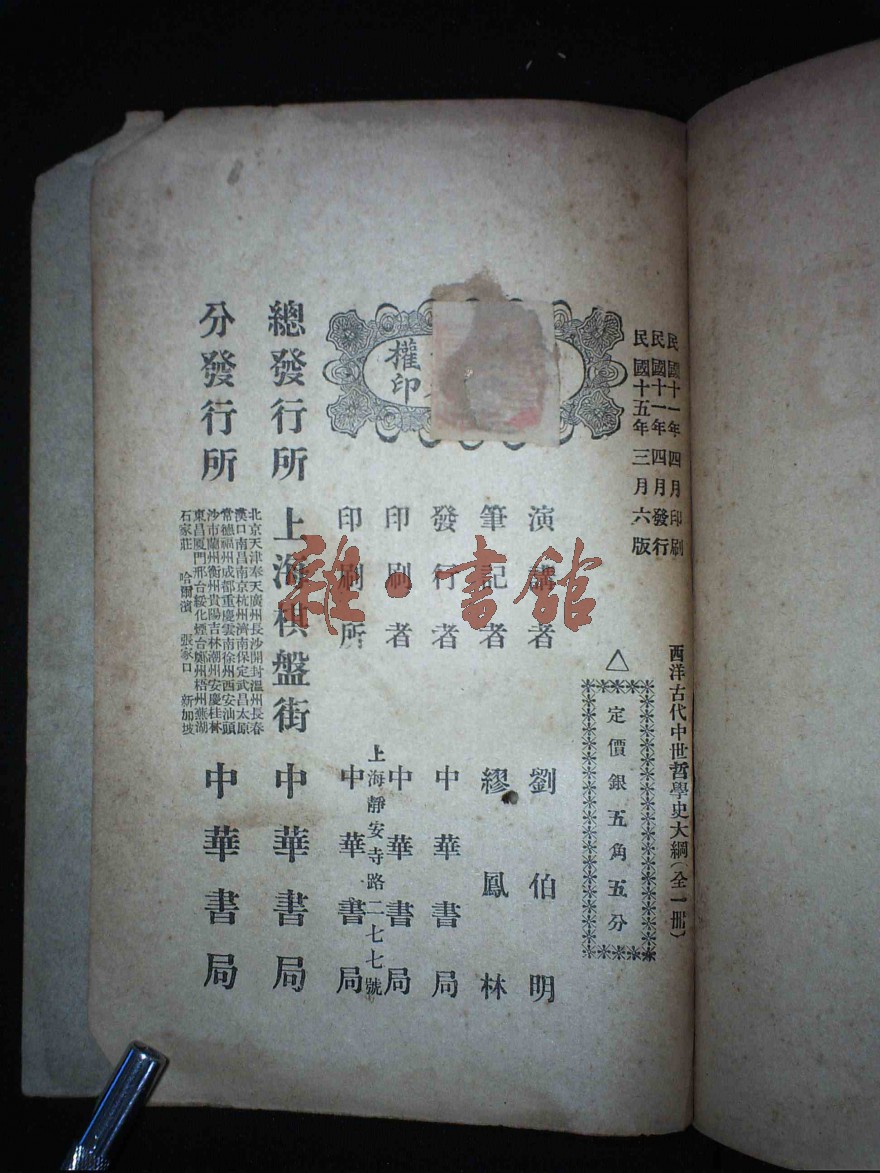 民國十一年四月印刷
民國十一年四月發行
民國十五年三月六版
西洋古代中世哲學史大綱(全一冊)
△
定價銀五角五分
演講者 劉伯明
筆記者 繆鳳林
發行者 中華書局
印刷者 中華書局
上海靜安寺路二七七號
印刷所 中華書局
權印
總發行所 上海棋盤街 中華書局
分發行所 中華書局
北京天津奉天廣州長沙開封溫州長春
漢口南昌南京杭州濟南保定武昌太原
常德福州成都重慶雲南徐州西安汕頭
沙市蘭州衢州貴陽吉林潮州安慶桂林
東昌厦門邢台綏化煙台鄭州梧州蕪湖
石家莊 哈爾濱 張家口 新加坡
雜·書館